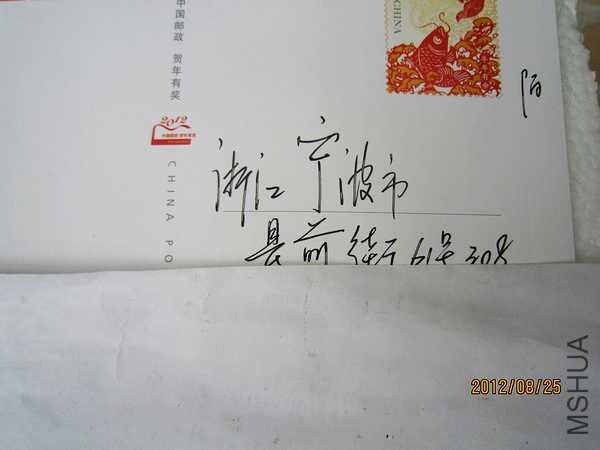 中国邮政 贺年有奖
2012
CHINA PO
CHINA
浙江宁波市
县前街61号308
2012/08/25
MSHUA